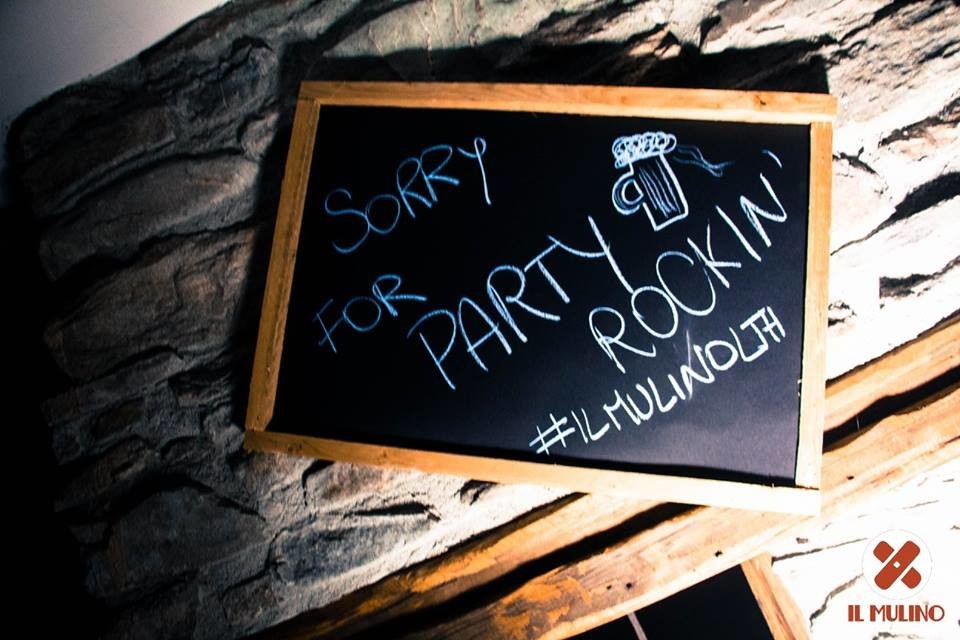 SORRY
FOR PARTY
ROCKIN'
#ILMULINOLTH
IL MULINO